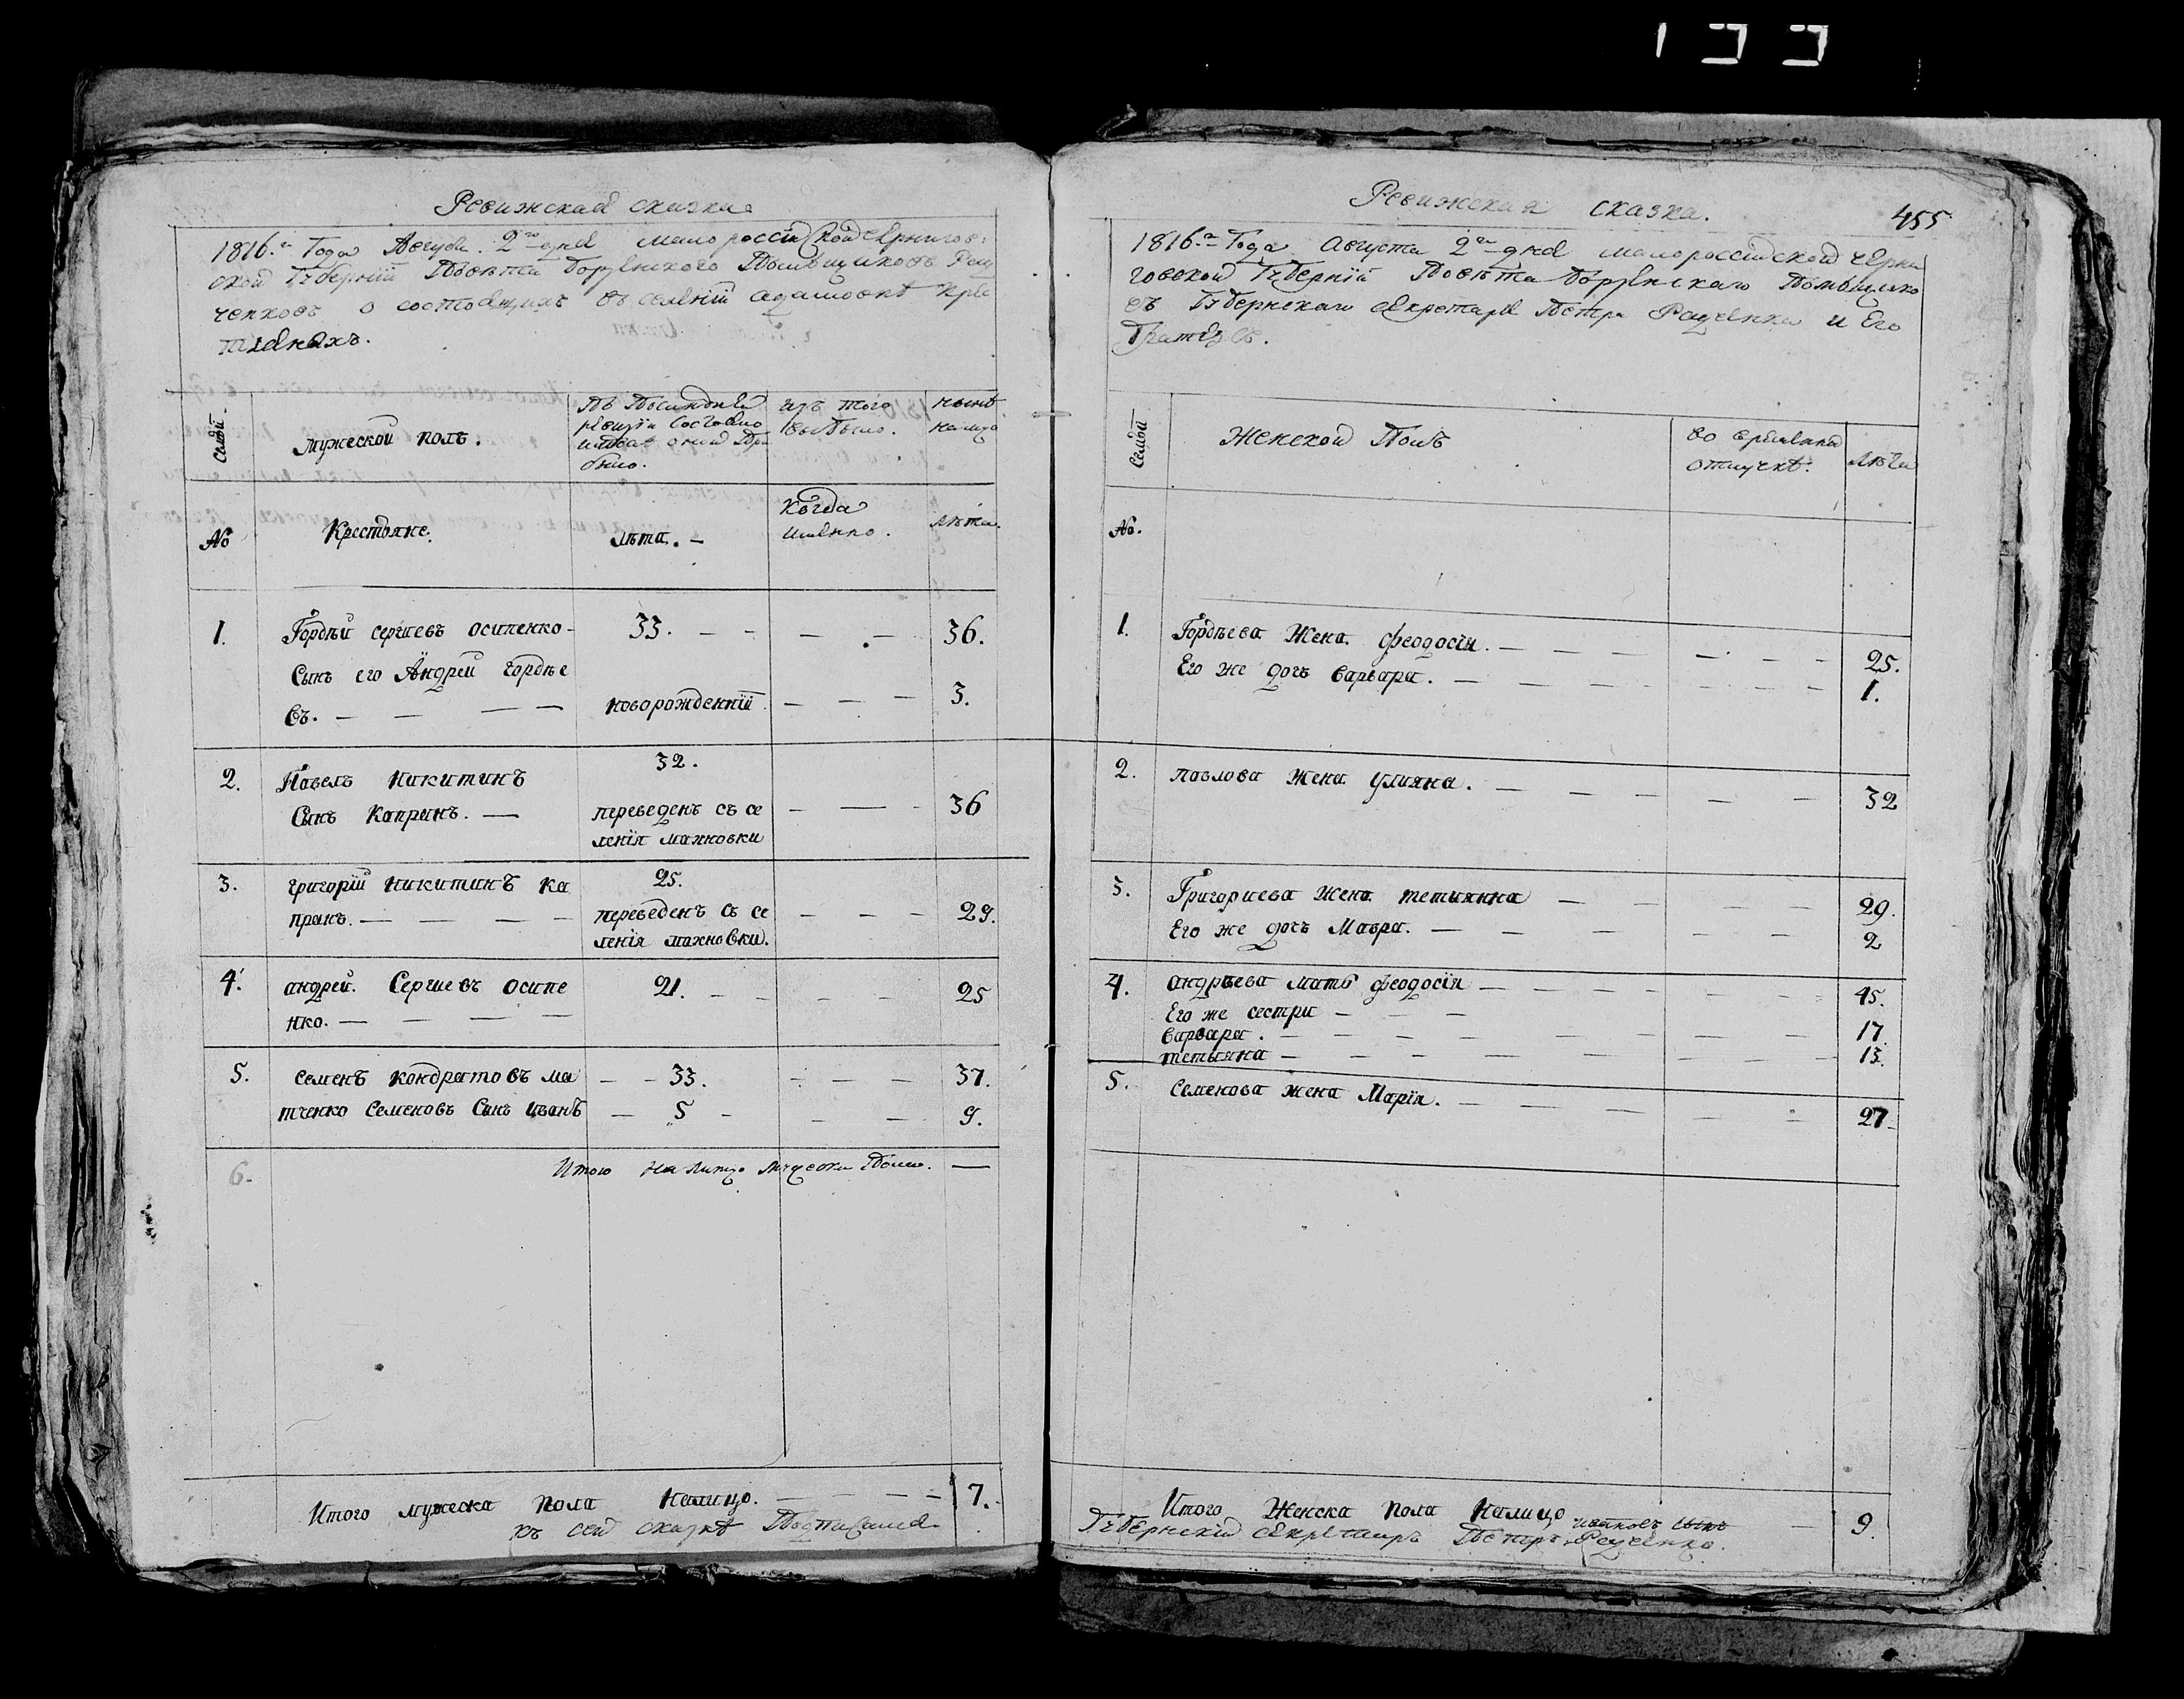 Ревижская сказка
1816.го Года Августа 2го дня малороссійской чернигов:
ской Губерніи Повѣта Борзенского Помѣщиковъ Рац
ченковъ о состоящихъ въ селеніи адамовкѣ кре
стьянахъ.
семьи
мужеской полъ.
По Послѣдней
ревизіи Состояло
и после оной При
было.
изъ того
выбыло.
нынѣ
налицо
№
Крестьяне.
лѣта. —
Когда
имянно.
лѣта.
1. Гордѣй сергиевъ осипенко - 33. — — — — 36.
Сынъ его Андрей гордѣе
въ. — — — — новорожденній — — — 3.
32.
2. Павелъ Никитинъ
Сынъ Капранъ. — переведенъ съ се — — — 36
ленія махновки
3. григорій никитинъ ка 25.
пранъ. — — — — переведенъ съ се — — — 29.
ленія махновки.
4. андрей. Сергиевъ осипе 21. — — — — 25
нко. — — — —
5. семенъ кондратовъ ма — — 33. — — — 37.
тченко Семеновъ Сынъ иванъ — 5 — — — 9.
6. Итого на лицо мужеска Пола. —
Итого мужеска пола налицо. — — — — 7.
къ сей сказкѣ Подписался
133
Ревижская сказка.
455
1816.го Года августа 2го дня малороссійской черни
говской Губерніи Повѣта Борзенскаго Помѣщико
въ Губернскаго секретаря Петра Раценка и Его
Братьевъ.
Семьи
Женской Полъ
во временной
отлучкѣ.
Лѣта
№.
1. Гордѣева Жена. феодосія. — — — — — — 25.
Его же дочь варвара. — — — — — — — 1.
2. павлова жена улияна. — — — — — 32
3. Григориева жена тетиянна — — — — 29.
Его же дочь Мавра. — — — — — 2
4. андрѣева мать феодосія — — — — — — 45.
Его же сестри — — —
варвара. — — — — — — — 17.
тетыяна — — — — — — — 13.
5. Семенова жена Марія. — — — — — — 27
Итого Женска пола налицо — 9.
Губернскій секретаръ Петръ ивановъ сынъ Раценко.